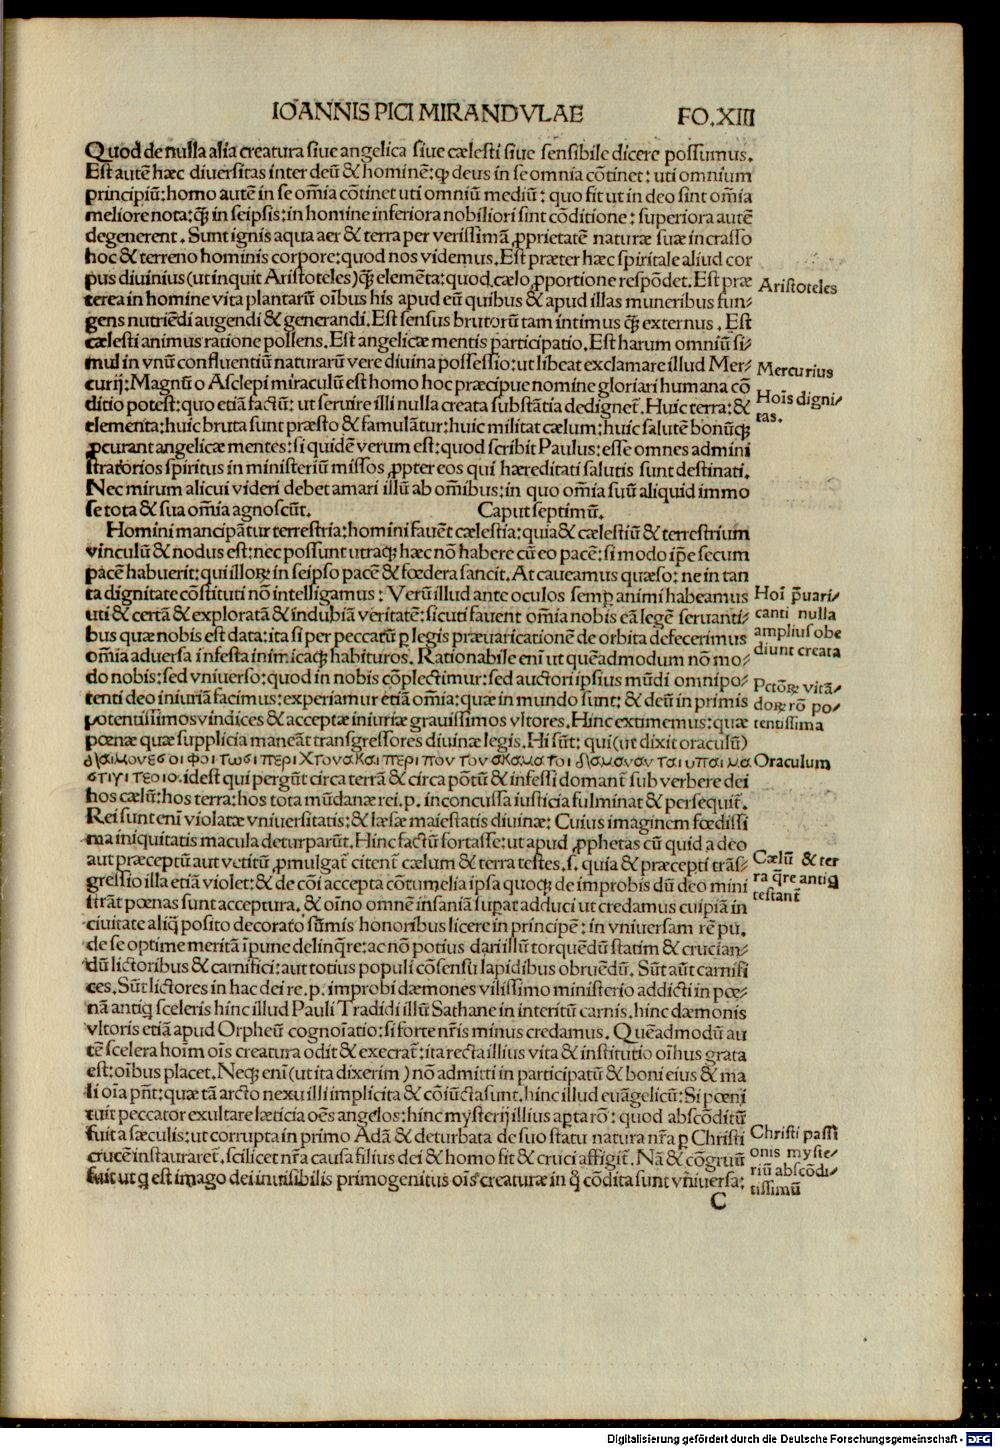 IOANNIS PICI MIRANDVLAE FO.XIII
Quod de nulla alia creatura siue angelica siue cælesti siue sensibile dicere possumus.
Est autē hæc diuersitas inter deū & hominē: ꝙ deus in se omnia cōtinet: uti omnium
principiū: homo autē in se om̄ia cōtinet uti omniū mediū: quo fit ut in deo sint om̄ia
meliore nota: ꝙ̄ in seipsis: in homine inferiora nobiliori sint cōditione: superiora autē
degenerent. Sunt ignis aqua aer & terra per verissimā ꝓprietatē naturæ suæ in crasso
hoc & terreno hominis corpore: quod nos videmus. Est præter hæc spiritale aliud cor
pus diuinius (ut inquit Aristoteles) ꝙ̄ elemēta: quod cælo ꝓportione respōdet. Est præ
Aristoteles
terea in homine vita plantarū oībus his apud eū quibus & apud illas muneribus fun⸗
gens nutriēdi augendi & generandi. Est sensus brutorū tam intimus ꝙ̄ externus. Est
cælesti animus ratione pollens. Est angelicæ mentis participatio. Est harum omniū si⸗
mul in vnū confluentiū naturarū vere diuina possessio: ut libeat exclamare illud Mer⸗
Mercurius
curij: Magnū o Asclepi miraculū est homo hoc præcipue nomine gloriari humana cō
ditio potest: quo etiā factū: ut seruire illi nulla creata substātia dedignet̄. Huic terra: &
Hoīs digni⸗
tas.
elementa: huic bruta sunt præsto & famulātur: huic militat cælum: huic salutē bonūꝗ
ꝓcurant angelicæ mentes: si quidē verum est: quod scribit Paulus: esse omnes admini
stratorios spiritus in ministeriū missos ꝓpter eos qui hæreditati salutis sunt destinati.
Nec mirum alicui videri debet amari illū ab om̄ibus: in quo om̄ia suū aliquid immo
se tota & sua om̄ia agnoscūt. Caput septimū.
Homini mancipātur terrestria: homini fauēt cælestia: quia & cælestiū & terrestrium
vinculū & nodus est: nec possunt utraꝗ hæc nō habere cū eo pacē: si modo ip̄e secum
pacē habuerit: qui illoꝝ in seipso pacē & fœdera sancit. At caueamus quæso: ne in tan
ta dignitate cōstituti nō intelligamus: Verū illud ante oculos semꝑ animi habeamus
Hoī p̄uari⸗
canti nulla
amplius obe
diunt creata
uti & certā & exploratā & indubiā veritatē: sicuti fauent om̄ia nobis eā legē seruanti⸗
bus quæ nobis est data: ita si per peccatū ꝑ legis præuaricationē de orbita defecerimus
om̄ia aduersa infesta inimicaꝗ habituros. Rationabile enī ut quēadmodum nō mo⸗
do nobis: sed vniuerso: quod in nobis cōplectimur: sed auctori ipsius mūdi omnipo⸗
Pctōꝝ vitā⸗
doꝝ rō po⸗
tentissima
tenti deo iniuriā facimus: experiamur etiā om̄ia: quæ in mundo sunt: & deū in primis
potentissimos vindices & acceptæ iniuriæ grauissimos vltores. Hinc extimemus: quæ
pœnæ quæ supplicia maneāt transgressores diuinæ legis. Hi sūt: qui (ut dixit oraculū)
Oraculum
idest qui pergūt circa terrā & circa pōtū & infessi domant̄ sub verbere dei
hos cælū: hos terra: hos tota mūdanæ rei. p. inconcussa iusticia fulminat & persequit̄.
Rei sunt enī violatæ vniuersitatis: & læsæ maiestatis diuinæ: Cuius imaginem fœdissi
ma iniquitatis macula deturparūt. Hinc factū fortasse: ut apud ꝓphetas cū quid a deo
aut præceptū aut vetitū ꝓmulgat̄ citent̄ cælum & terra testes. s. quia & præcepti trās⸗
Cælū & ter
ra q̄re antiq
testant̄
gressio illa etiā violet: & de cōi accepta cōtumelia ipsa quoꝗ de improbis dū deo mini
strāt pœnas sunt acceptura, & oīno omnē insaniā suꝑat adduci ut credamus cuipiā in
ciuitate aliꝗ̄ posito decorato sūmis honoribus licere in principē: in vniuersam rē pu.
de se optime meritā īpune delinq̄re: ac nō potius dari illū torquēdū statim & crucian⸗
dū lictoribus & carnifici: aut totius populi cōsensu lapidibus obruēdū. Sūt aūt carnifi
ces. Sūt lictores in hac dei re. p. improbi dæmones vilissimo ministerio addicti in pœ⸗
nā antiꝗ sceleris hinc illud Pauli Tradidi illū Sathane in interitū carnis. hinc dæmonis
vltoris etiā apud Orpheū cognoīatio: si forte nr̄is minus credamus. Quēadmodū au
tē scelera hoīm oīs creatura odit & execrat̄: ita recta illius vita & institutio oībus grata
est: oībus placet. Neꝗ enī (ut ita dixerim) nō admitti in participatū & boni eius & ma
li oīa pn̄t: quæ tā arcto nexu illi implicita & cōiūcta sunt. hinc illud euāgelicū: Si pœni
tuit peccator exultare læticia oēs angelos: hinc mysterij illius aꝑta rō: quod abscōditū
fuit a sæculis: ut corrupta in primo Adā & deturbata de suo statu natura nr̄a ꝑ Christi
Christi passi
onis myste⸗
riū abscōdi⸗
tissimū
crucē instauraret̄. scilicet nr̄a causa filius dei & homo fit & cruci affigit̄. Nā & cōgruū
fuit ut q est imago dei inuisibilis primogenitus oīs creaturæ in q̄ cōdita sunt vniuersa:
C
Digitalisierung gefördert durch die Deutsche Forschungsgemeinschaft - DFG